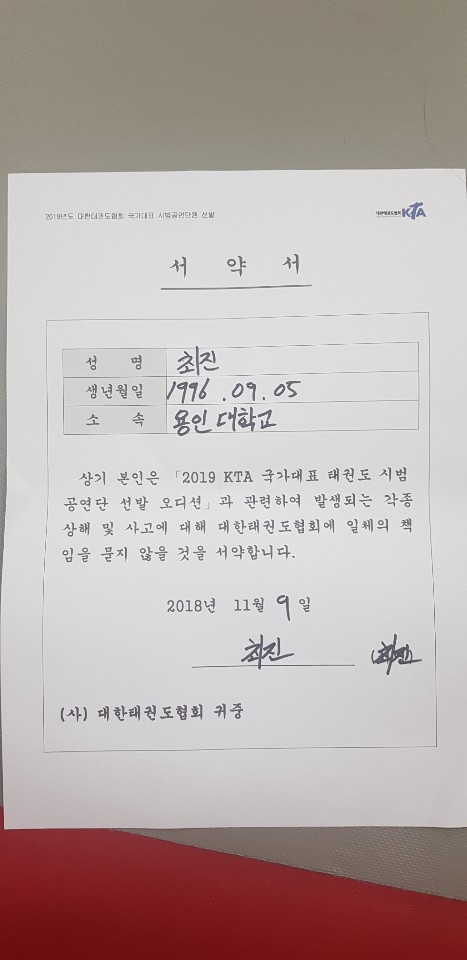 2019년도 대한태권도협회 국가대표 시범공연단원 선발
대한태권도협회 KTA
서 약 서
성 명 최진
생년월일 1996.09.05
소 속 용인대학교
상기 본인은 「2019 KTA 국가대표 태권도 시범
공연단 선발 오디션」과 관련하여 발생되는 각종
상해 및 사고에 대해 대한태권도협회에 일체의 책
임을 묻지 않을 것을 서약합니다.
2018년 11월 9일
최진 최진
(사) 대한태권도협회 귀중